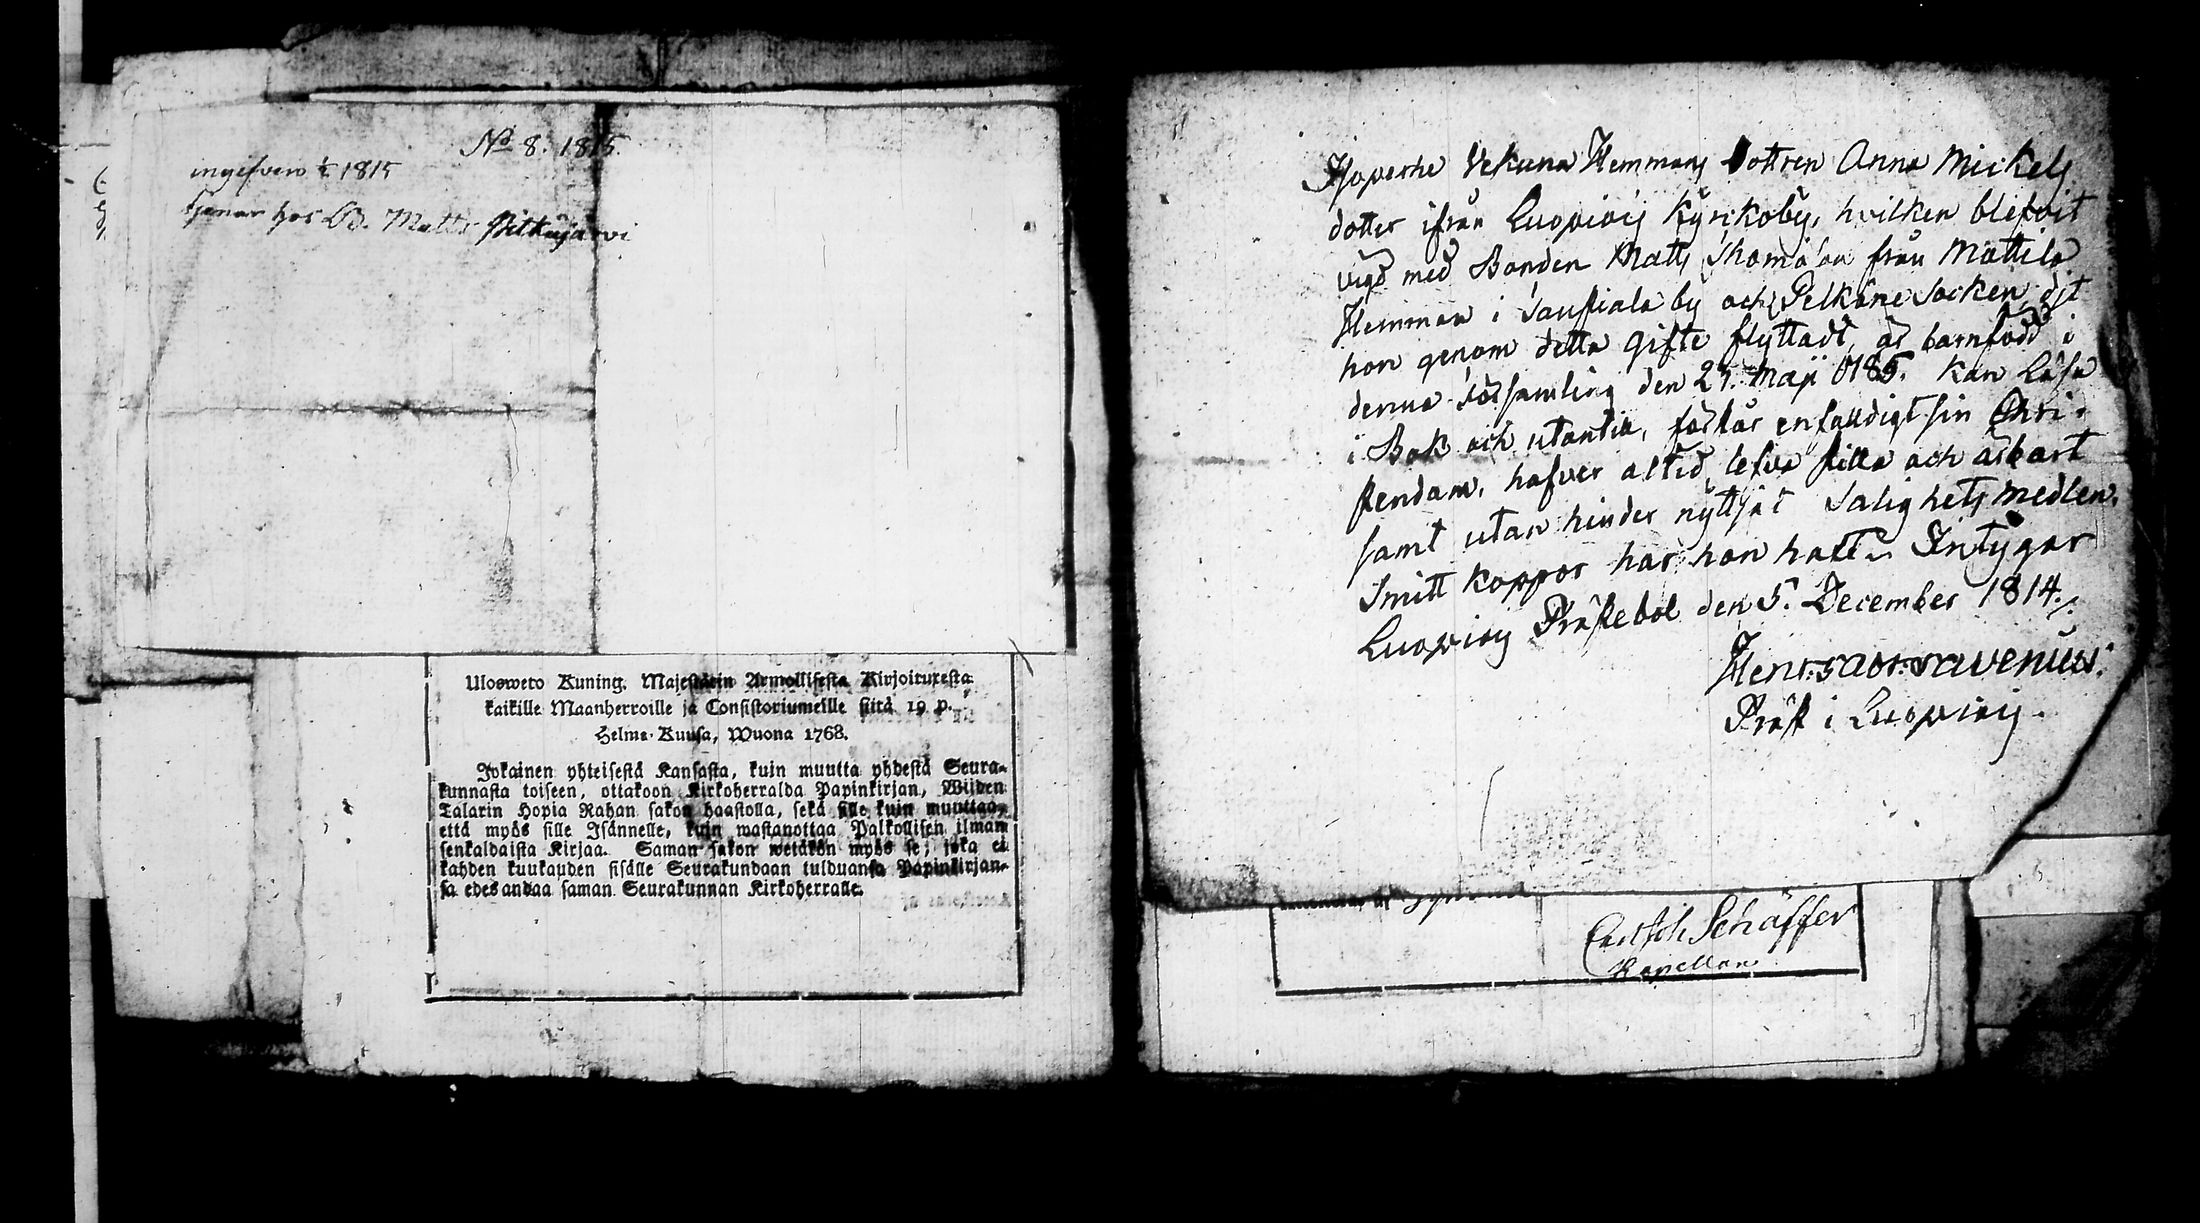 No 8. 1815.
ingifven 1/2 1815
tjenar hos Bd. Matts Pitkäjärvi
Uloswero Kuning. Majestätin Armollisesta Kirjoituxesta
kaikille Maanherroille ja Consistoriumeille siitä 19 p.
Helme-Kuusa, Wuona 1768.
Jokainen yhteisestä Kansasta, kuin muutta yhdestä Seura-
kunnasta toiseen, ottakoon Kirkoherralda Papinkirjan, Wijden
Talarin Hopia Rahan sakon haastolla, sekä sille kuin muuttaa,
että myös sille Isännelle, kuin wastanottaa Palkollisen ilman
senkaldaista Kirjaa. Saman sakon wetäkön myös se, joka ei
kahden kuukauden sisälle Seurakundaan tulduansa Papinkirjan-
sa edesandaa saman Seurakunnan Kirkoherralle.
Vekuna Hemmans Dottren Anna Mickels
dotter ifrån Luopiois Kyrckoby, hvilken blefvit
vigd med Bonden Matts Thomasson från Mattila
Hemman i Sauſiala by och Pelkäne Socken dit
hon genom detta gifte flyttadt, är barnfödd i
denna Församling den Maji Kan Läsa
i Bok och utantill, förstår enfaldigt sin Chri-
stendom, hafver altid lefvat stilla och ärbart
samt utan hinder nyttjat Salighets medlen.
Smitt koppor har hon haft. Intygar
Luopiois Prästebol den 5. December 1814.
Präst i Luopiois.
Schäffer
Kapellan